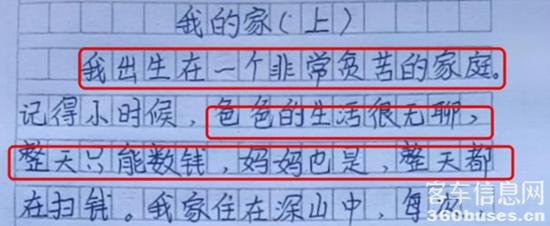 我的家(上)
我出生在一个非常贫苦的家庭。
记得小时候,爸爸的生活很无聊,
整天只能数钱,妈妈也是,整天都
在扫钱。我家住在深山中,每
客车信息网
360buses.cn